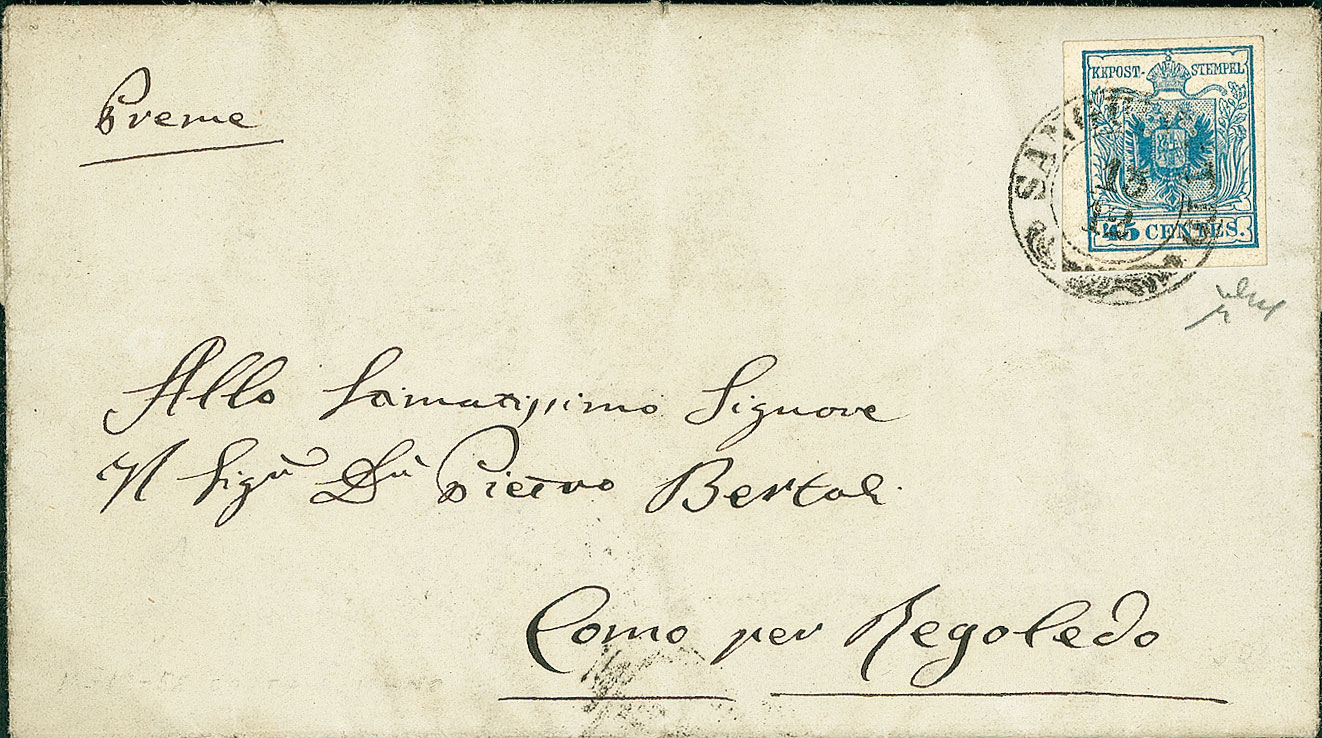 Preme
KKPOST-STEMPEL
15
12
45 CENTES.
Allo
Signore
Il Sigr Dr Pietro Bertoli
Como per Regoledo